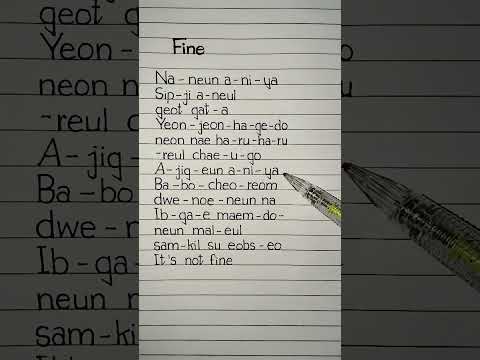 Fine
Na-neun a-ni-ya
Sip-ji a-neul
geot gat-a
Yeon-jeon-ha-ge-do
neon nae ha-ru-ha-ru
-reul chae-u-go
A-jig-eun a-ni-ya
Ba-bo-cheo-reom
dwe-noe-neun na
Ib-ga-e maem-do-
neun mal-eul
sam-kil su eobs-eo
It's not fine
geot
Yeon
neon
-reul
A-jig
Ba-bo
dwe-
Ib-ga
neun
sam-k